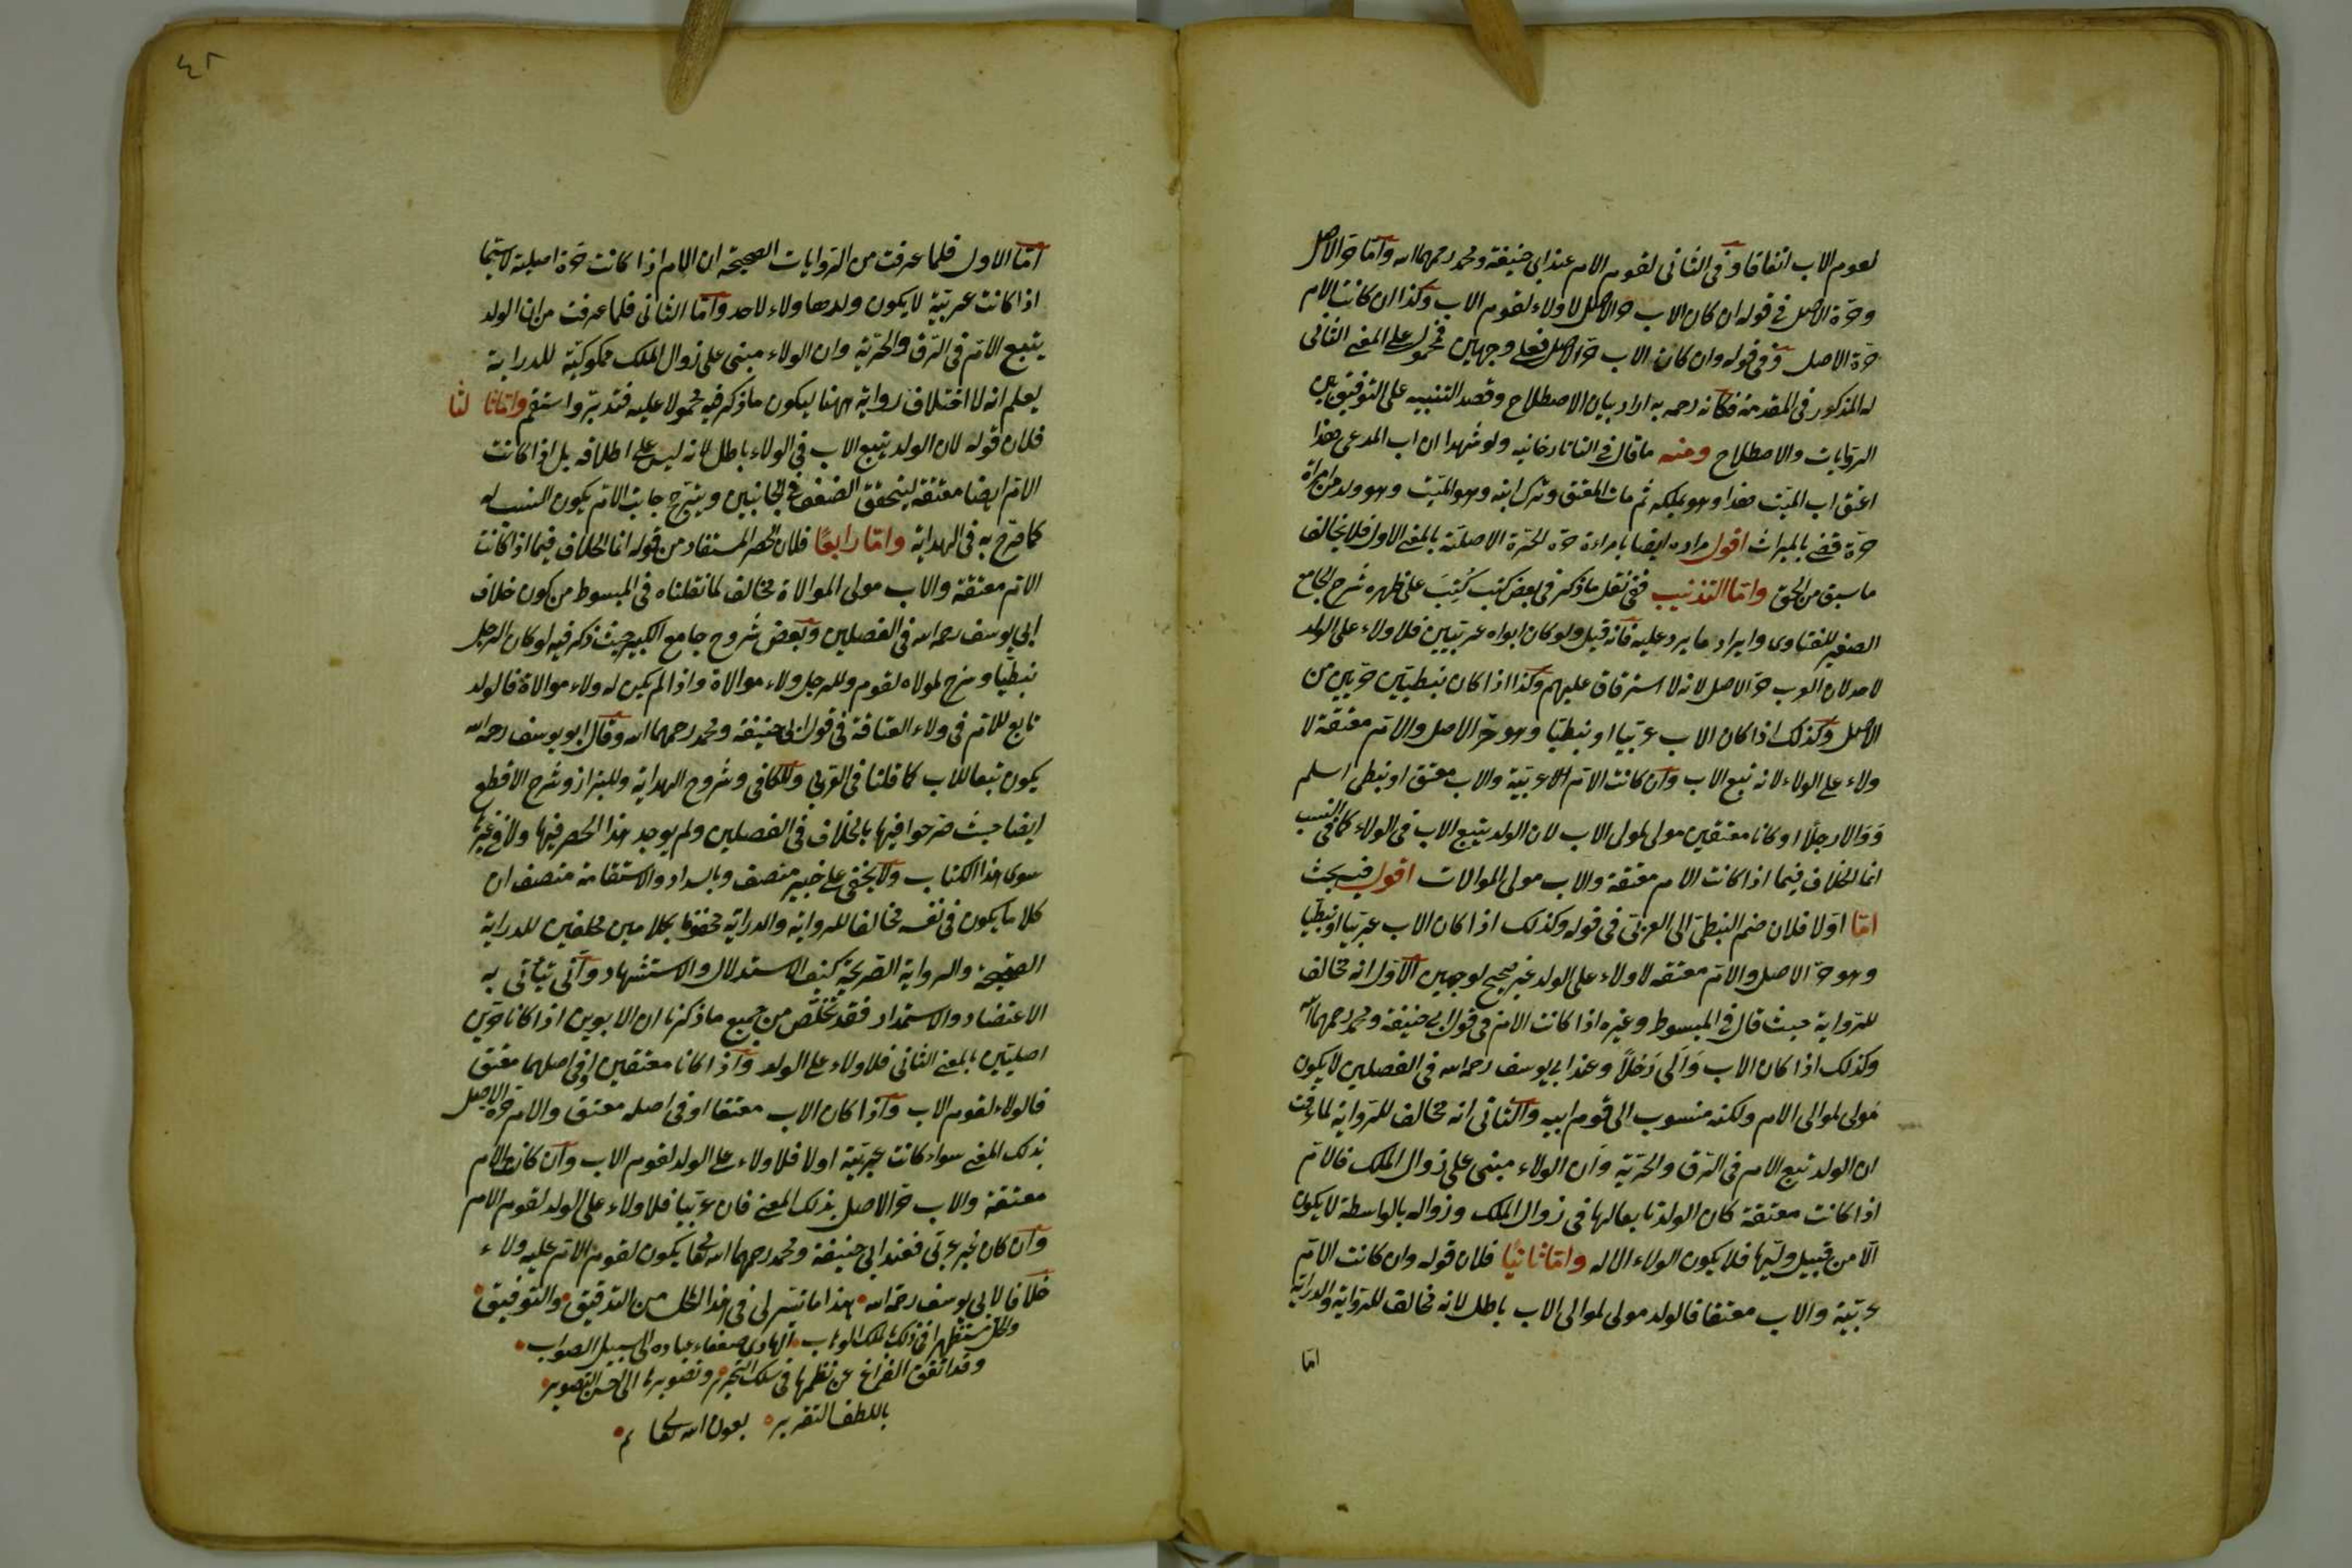 لقوم الاب اتفاقا وفى الثانى لقوم الام عند ابى حنيفة ومحمد رحمهما الله واما حر الاصل
وحرة الاصل فى قوله ان كان الاب حر الاصل لا ولاء لقوم الاب وكذا ان كانت الام
حرة الاصل وفى قوله وان كان الاب حر الاصل فعلى وجهين فمحمول على المعنى الثانى
له المذكور فى المقدمة فكانه رحمه به اراد بيان الاصطلاح وقصد التنبيه على التوفيق بين
الروايات والاصطلاح ومنه ما قال فى التاتارخانيه ولو شهدا ان اب المدعى هذا
اعتق اب الميت هذا وهو يملكه ثم مات المعتق وترك ابنه وهو الميت وهو ولد من امراة
حرة قضى بالميراث اقول مراده ايضا بامراءة حرة الحرة الاصلية بالمعنى الاول فلا يخالف
ما سبق من الحق واما التذنيب ففى نقل ما ذكر فى بعض كتب كُتِبَ على ظهره شرح الجامع
الصغير للفتاوى وايراد ما يرد عليه فانه قيل ولو كان ابواه عربيين فلا ولاء على الولد
لاحد لان العرب حر الاصل لانه لا استرقاق عليهم وكذا اذا كان نبطيين حربين من
الاصل وكذلك اذا كان الاب عربيا او نبطيا وهو حر الاصل والام معتقة لا
ولاء على الولاء لانه تبع الاب وان كانت الام الاعربية والاب معتق او نبطى اسلم
وَوَالا رجلًا او كانا معتقين مولى لمولى الاب لان الولد يتبع الاب فى الولاء كما فى النسب
انما الخلاف فيما اذا كانت الام معتقة والاب مولى الموالات اقول فيه بحث
اما اولا فلان ضم النبطى الى العربى فى قوله وكذلك اذا كان الاب عربيا او نبطيا
وهو حر الاصل والام معتقه لا ولاء على الولد غير صحيح لوجهين الاول انه مخالف
للرواية حيث قال فى المبسوط وغيره اذا كانت الام فى قول ابى حنيفة ومحمد رحمهما الله
وكذلك اذا كان الاب وَالَى رَجُلًا وعند ابى يوسف رحمه الله فى الفصلين لا يكون
مولى لموالى الام ولكنه منسوب الى قوم ابيه والثانى انه مخالف للرواية لما عرفت
ان الولد تبع الام فى الرق والحرية وان الولاء مبنى على زوال الملك فالام
اذا كانت معتقة كان الولد تابعا لها فى زوال الملك وزواله بالواسطة لا يكون
الا من قبيل وليها فلا يكون الولاء الا له واما ثانيا فلان قوله وان كانت الام
عربية والاب معتقا فالولد مولى لموالى الاب باطل لانه مخالف للرواية والدراية
اما
٤٢
اما الاول فلما عرفت من الروايات الصحيحة ان الام اذا كانت حرة اصلية لاسيما
اذا كانت عربية لا يكون ولدها ولاء لاحد واما الثانى فلما عرفت من ان الولد
يتبع الام فى الرق والحرية وان الولاء مبنى على زوال الملك للدراية
يعلم انه لا اختلاف رواية ههنا ليكون ما ذكر فيه محمولا عليه فتدبر واستقم واما ثالثا
فلان قوله لان الولد يتبع الاب فى الولاء باطل لانه ليس على اطلاقه بل اذا كانت
الام ايضا معتقة ليتحقق الضعف فى الجانبين ويترجح جانب الام يكون النسب له
كما صرح به فى الهداية واما رابعًا فلان الحصر المستفاد من قوله انما الخلاف فيما اذا كانت
الام معتقة والاب مولى الموالاة مخالف لما نقلناه فى المبسوط من كون خلاف
ابى يوسف رحمه الله فى الفصلين وبعض شروح جامع الكبير حيث ذكر فيه لو كان الرجل
نبطيا وشرح لمولاه لقوم وللرجل ولاء موالاة واذا لم يكن له ولاء موالاة فالولد
تابع للام فى ولاء العتاقة فى قول ابى حنيفة ومحمد رحمهما الله وقال ابو يوسف رحمه الله
يكون تبعا للاب كما قلنا فى العربى وللكافى وشروح الهداية وللبزاز وشرح الاقطع
ايضا حيث صرحوا فيها بالخلاف فى الفصلين ولم يوجد هذا الحصر فيها ولا فى غيرها
سوى هذا الكتاب ولا يخفى على خبير منصف وبالسداد والاستقامة متصف ان
كلاما يكون فى نفسه مخالفا للرواية والدراية محفوفا بكلامين مخلفين للدراية
الصحيحة والرواية الصريحة كيف الاستدلال والاستشهاد وانى يتأتى به
الاعتضاد والاستمداد فقد تخلص من جميع ما ذكرنا ان الابوين اذا كانا حرين
اصليين بالمعنى الثانى فلا ولاء على الولد واذا كانا معتقين او فى اصلهما معتق
فالولاء لقوم الاب واذا كان الاب معتقا او فى اصله معتق والام حرة الاصل
بذلك المعنى سواء كانت عربية اولا فلا ولاء على الولد لقوم الاب وان كانت الام
معتقة والاب حر الاصل بذلك المعنى فان عربيا فلا ولاء على الولد لقوم الام
وان كان غير عربى فعند ابى حنيفة ومحمد رحمهما الله تعا يكون لقوم الام عليه ولاء
خلافا لابى يوسف رحمه الله هذا ما تيسر لى فى هذا المحل من التدقيق والتوفيق
والحل مستظهرا فى ذلك بملك الوهاب الهادى ضعفاء عباده الى سبيل الصواب
وقد اتفق الفراغ عن نظمها فى سلك التحرير وتصويرها الى احسن التصوير
باللطف التقرير بعون الله تعا م